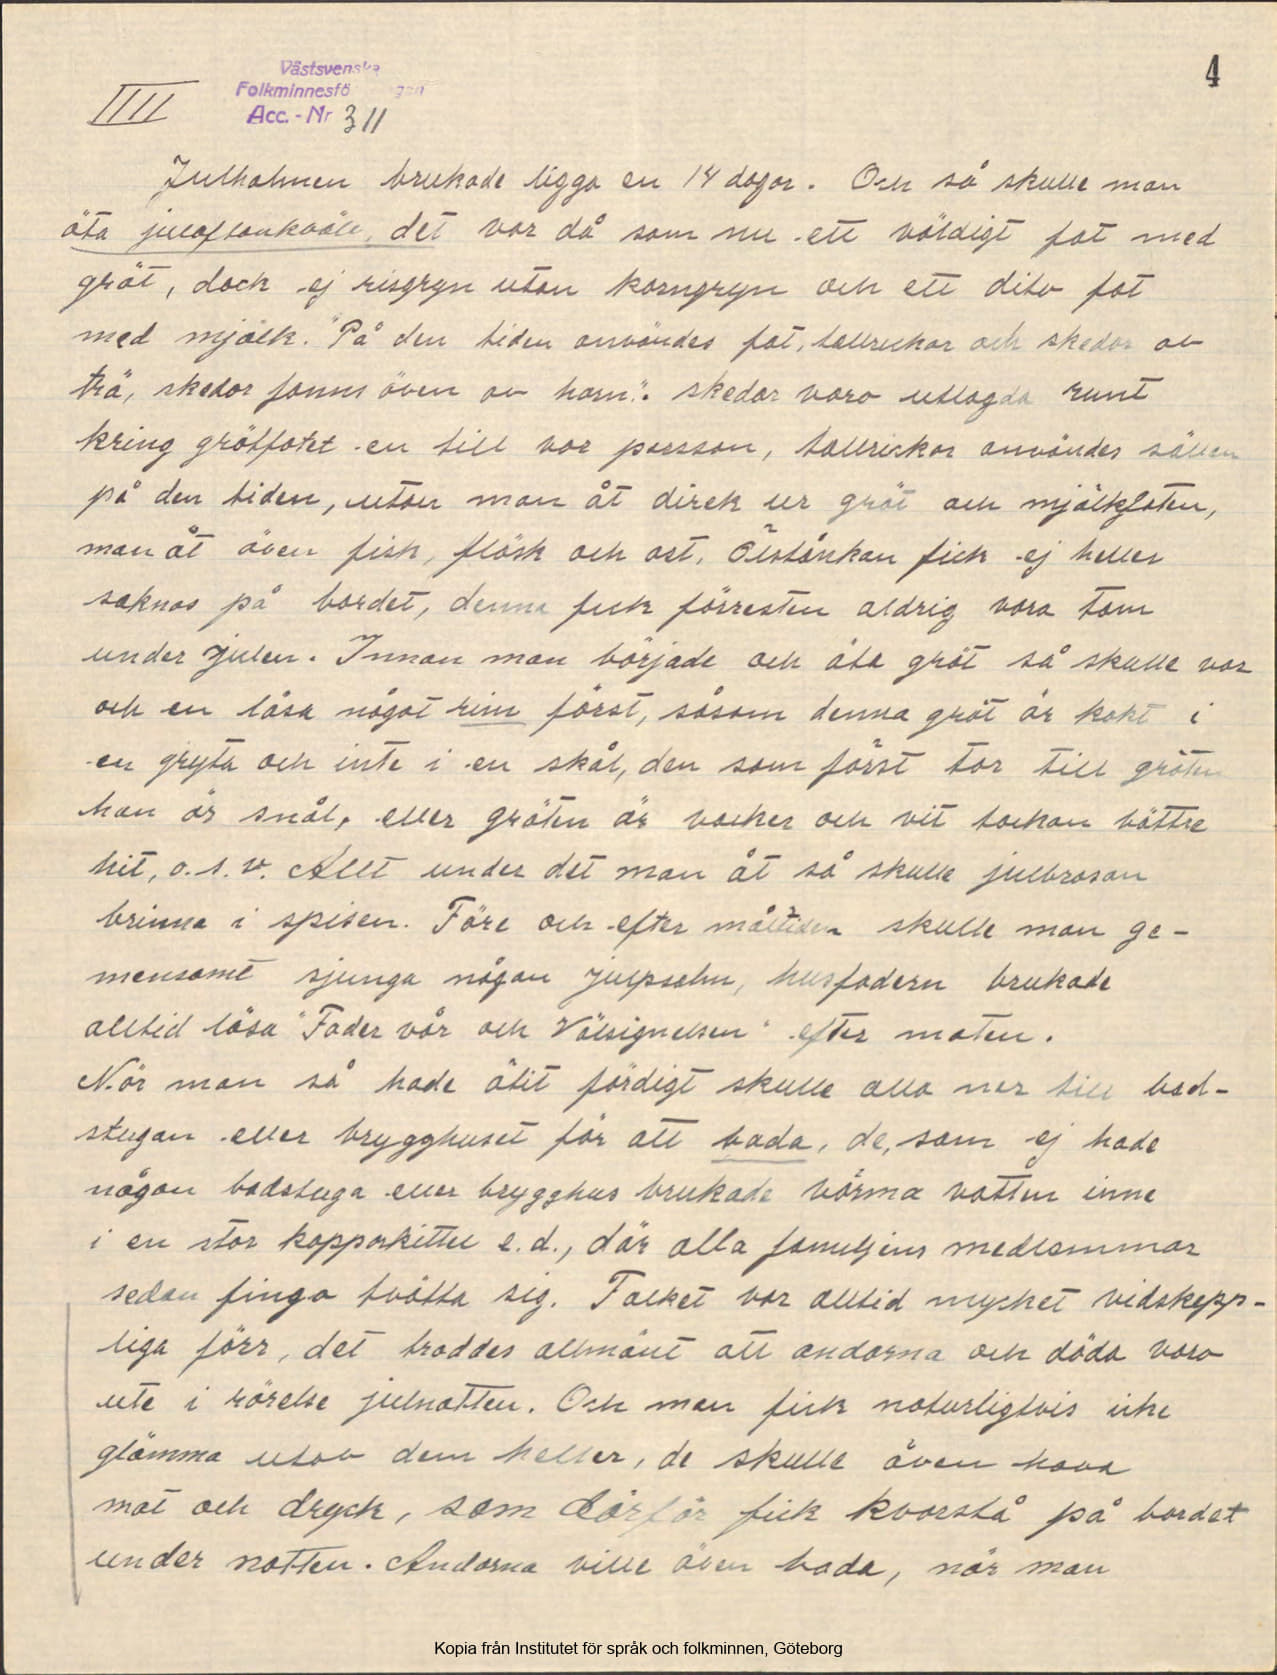 4
IIII
Västsvenska
Folkminnesfö gen
Acc.-Nr 311
Julhalmen brukade ligga en 14 dagar. Och så skulle man
äta julaftonkväll, det var då som nu ett väldigt fat med
gröt, dock ej risgryn utan korngryn och ett dito fat
med mjölk. "På den tiden användes fat, tallrickar och skedar av
trä, skedar fanns även av horn". skedar voro utlagda runt
kring grötfatet en till var persson, tallrickar användes sällan
på den tiden, utan man åt direk ur gröt och mjölkfaten,
man åt även fisk, fläsk och ost, Ölstånkan fick ej heller
saknas på bordet, denna fick förresten aldrig vara tom
under julen. Innan man började och äta gröt så skulle var
och en läsa något rim först, såsom denna gröt är kokt i
en gryta och inte i en skål, den som först tar till gröten
han är snål, eller gröten är vacker och vit tackan bättre
hit, o.s.v. Allt under det man åt så skulle julbrasan
brinna i spisen. Före och efter måltiden skulle man ge-
mensamt sjunga någon julpsalm, husfadern brukade
alltid läsa "Fader vår och Välsignelsen" efter maten.
När man så hade ätit färdigt skulle alla ner till bad-
stugan eller brygghuset för att bada, de, som ej hade
någon badstuga eller brygghus brukade värma vatten inne
i en stor kopparkittel e.d., där alla familjens medlemmar
sedan fingo tvätta sig. Folket var alltid mycket vidskepp-
liga förr, det troddes allmänt att andarna och döda voro
ute i rörelse julnatten. Och man fick naturligtvis icke
glömma utav dem heller, de skulle även hava
mat och dryck, som därför fick kvarstå på bordet
under natten. Andarna ville även bada, när man
Kopia från Institutet för språk och folkminnen, Göteborg